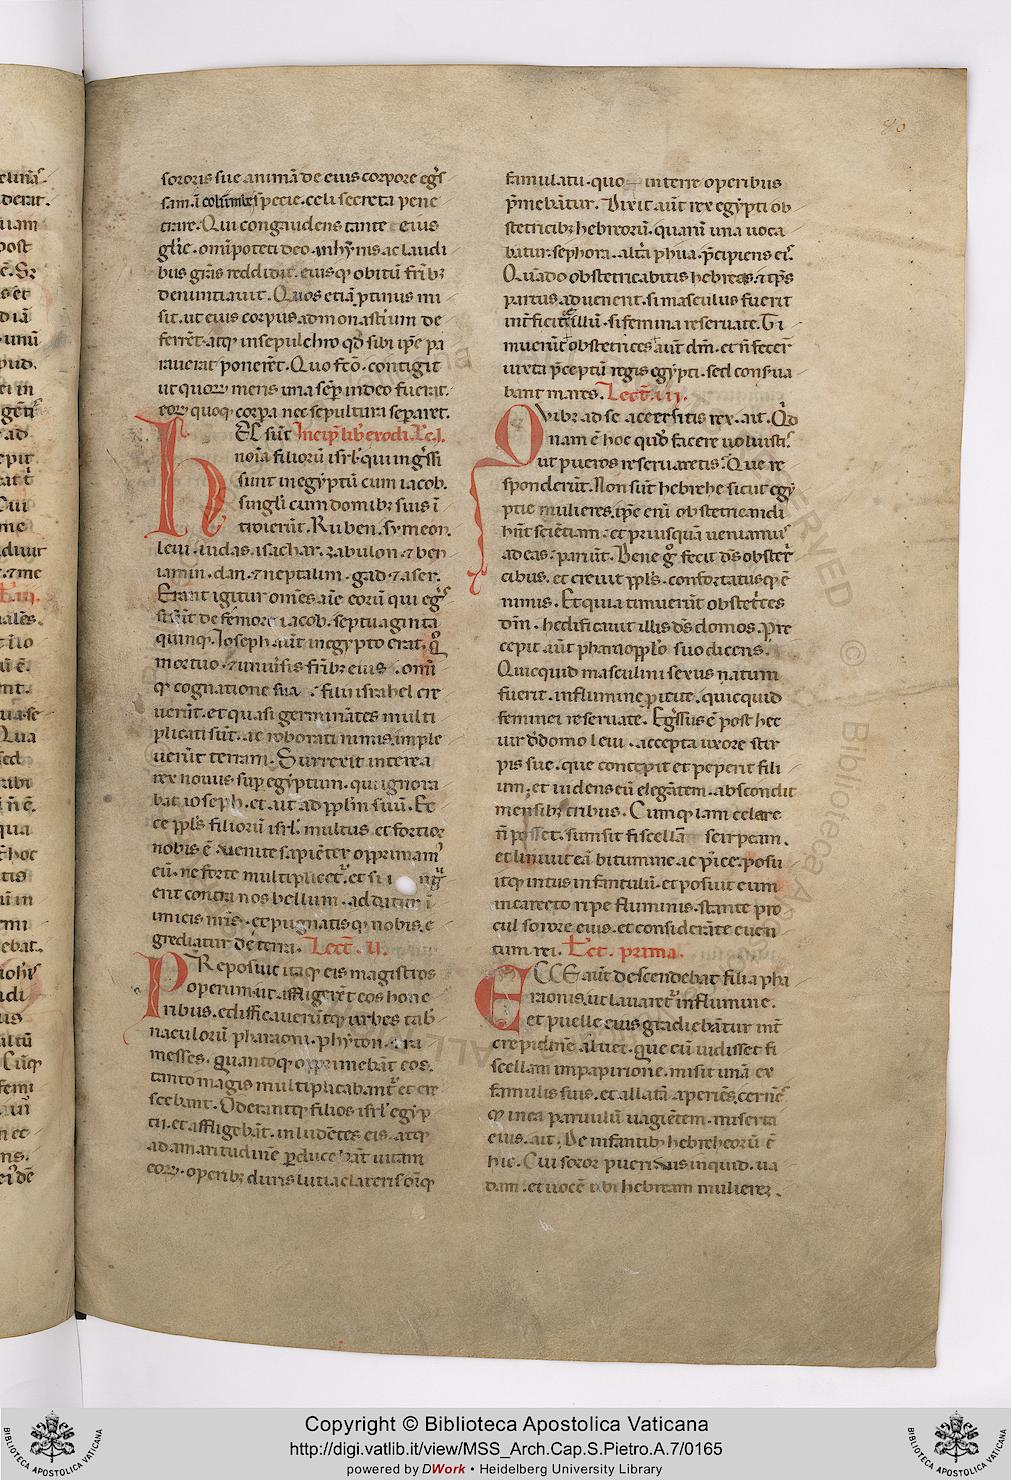 80
sororis sue animã de eius corpore egrs̃
sam. ĩ columbe specie. celi secreta pene
trare. Qui congaudens tante eius
gl̃ie. omĩpotẽti deo. inhỹmis ac laudi
bus grãs reddidit. eiusq; obitũ fr̃ibꝫ
denuntiavit. Quos etiã ꝓtinus mi
sit. ut eius corpus ad monast̃ium de
ferrẽt. atq; in sepulchro qđ sibi ip̃e pa
raverat ponerẽt. Quo fc̃o. contigit
ut quoꝝ mens una sẽp in deo fuerat.
eoꝝ quoq; corpa nec sepultura separet.
HEc sũt Incip̃ lib̃ exodi. Lc̃. I.
noĩa filiorũ isrl̃ qui ingr̃ssi
sunt in egyptũ cum iacob.
singl̃i cum domibꝫ suis ĩ
troierũt. Ruben. symeon.
levi. iudas. isachar. zabulon. ⁊ ben
iamin. dan. ⁊ neptalim. gad. ⁊ aser.
Erant igitur om̃es aĩe eorũ qui egr̃s
si sũt de femore iacob. septuaginta
quinq;. Ioseph aũt in egypto erat. Q̃
mortuo. ⁊ uniṽsis fr̃ibꝫ eius. omĩ
q; cognatione sua. filii israhel cre
verũt. et quasi germinãtes multi
plicati sũt. ac roborati nimis. imple
verũt terram. Surrexit interea
rex novus sup̃ egyptum. qui ignora
bat ioseph. et. ait ad pp̃lm suũ. Ec
ce pp̃ls filiorũ isrl̃. multus et fortior
nobis ẽ. venite sapiẽter opprimam᷒
eũ. ne forte multiplicet᷒. et si i ng̃
erit contra nos bellum. addatur ĩ
imicis nr̃is. expugnatisq; nobis. e
grediatur de terra. Lect̃. II.
PReposuit itaq; eis magistros
operum ut affligerẽt eos hone
ribus. edificaverũtq; urbes tab̃
naculorũ pharaoni. phyton. ⁊ ra
messes. quantoq; opprimebãt eos.
tanto magis multiplicabant᷒ et cre
scebant. Oderantq; filios isrl̃ egyp
tii. et affligebãt. inludẽtes eis. atq;
ad amaritudinẽ ꝑducebãt vitam
eoꝝ. operibꝫ duris luti ac lateris. oĩq;
famulatu. quo in terre operibus
p̃mebãtur. Dixit aũt rex egypti ob
stetricibꝫ hebreorũ. quarũ una voca
batur. sephora. alt̃a phua. p̃cipiens ei᷒.
Quãdo obstetricabitis hebreas. ⁊ tp̃s
partus advenerit. si masculus fuerit
int̃ficite illũ. si femina reservate. Ti
muerũt obstetrices aũt dm̃. et ñ fecer̃
iuxta p̃ceptũ regis egypti. sed conserva
bant mares. Lect̃. III.
QVibꝫ ad se accersitis rex. ait. Q̃d
nam ẽ hoc quod facere voluisti᷒.
ut pueros reservaretis. Que re
sponderũt. Non sũt hebrehe sicut egy
ptie mulieres. ip̃e eni obstetricandi
hñt sciẽtiam. et priusquã veniam᷒
ad eas. pariũt. Bene g̃ fecit ds̃ obstetr̃
cibus. et crevit pp̃ls. confortatusq; ẽ
nimis. Et quia timuerũt obstetr̃ces
dm̃. hedificavit illis ds̃ domos. Pre
cepit aũt pharao pp̃lo suo dicens.
Quicquid masculini sexus natum
fuerit. in flumine ꝓicite. quicquid
feminei reservate. Egr̃ssus ẽ post hec
vir d̃ domo levi. accepta uxore stir
pis sue. que concepit et peperit fili
um. et videns eũ elegãtem. abscondit
mensibꝫ tribus. Cumq; iam celare
ñ posset. sumsit fiscellam scirpeam.
et linivit eã bitumine. ac pice. posu
itq; intus infantulũ. et posuit eum
in carecto ripe fluminis. stante pro
cul sorore eius. et considerãte even
tum rei. Lect̃. prima.
ECCE aũt descendebat filia pha
raonis. ut lavaret᷒ in flumine.
et puelle eius gradiebãtur int̃
crepidinẽ alvei. que cũ vidisset fi
scellam in papirione. misit unã ex
famulis suis. et allatã aperiẽs. cernẽs
q; in ea parvulũ vagiẽtem. miserta
eius. ait. De infantibꝫ hebreheorũ ẽ
hic. Cui soror pueri vis inquid. va
dam. et vocẽ tibi hebream mulierẽ.
Copyright © Biblioteca Apostolica Vaticana
http://digi.vatlib.it/view/MSS_Arch.Cap.S.Pietro.A.7/0165
powered by DWork • Heidelberg University Library